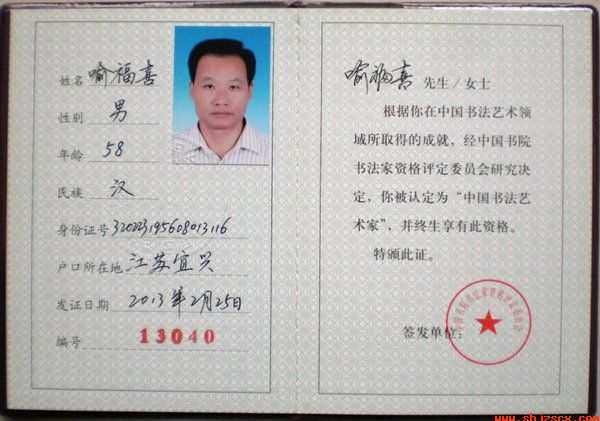 姓名 喻福喜
性别 男
年龄 58
民族 汉
身份证号 320223195608013116
户口所在地 江苏宜兴
发证日期 2013年2月25日
编号 13040
喻福喜 先生/女士
根据你在中国书法艺术领
域所取得的成就，经中国书院
书法家资格评定委员会研究决
定，你被认定为“中国书法艺
术家”，并终生享有此资格。
特颁此证。
签发单位：
中国书院书法家资格评定委员会
www.shjzscx.com